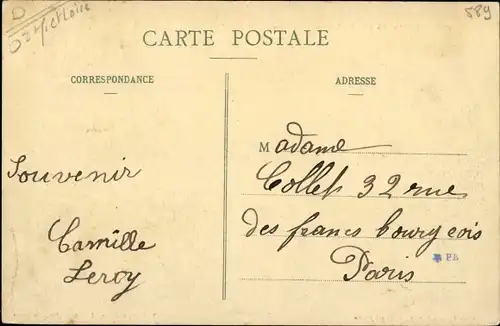 D
589
CARTE POSTALE
CORRESPONDANCE
ADRESSE
Souvenir
Camille
Leroy
Madame
Collet 32 rue
des francs bourgeois
Paris
PB